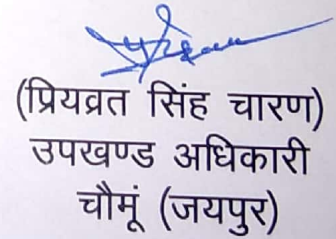 (प्रियव्रत सिंह चारण)
उपखण्ड अधिकारी
चौमूं (जयपुर)